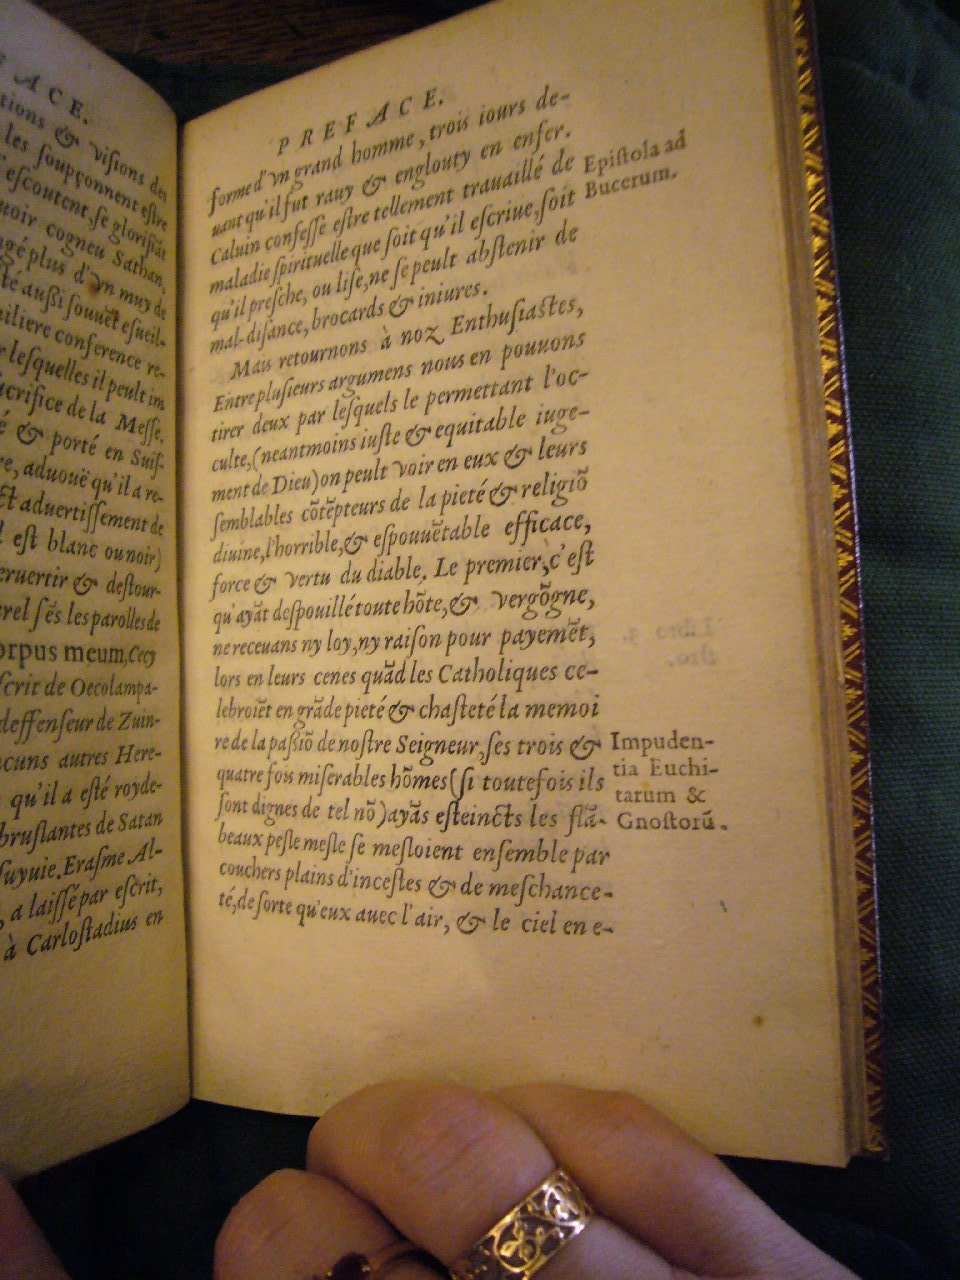 ACE.
tions & visions des
les soupçonnent estre
escoutent, se glorifiãt
uoir cogneu Sathan,
gé plus d'vn muy de
té außi souuẽt esueil-
iliere conference re-
lesquelles il peult im
crifice de la Messe.
é & porté en Suis-
re, aduouë qu'il a re-
ct aduertissement de
l est blanc ou noir)
eruertir & destour-
rel sẽs les parolles de
orpus meum, Cecy
scrit de Oecolampa-
deffenseur de Zuin-
cuns autres Here-
qu'il a esté royde-
bruslantes de Satan
suyuie. Erasme Al-
, a laissé par escrit,
à Carlostadius en
PREFACE.
forme d'vn grand homme, trois iours de-
uant qu'il fut rauy & englouty en enfer.
Caluin confesse estre tellement trauaillé de
maladie spirituelle que soit qu'il escriue, soit
qu'il presche, ou lise, ne se peult abstenir de
mal-disance, brocards & iniures.
Epistola ad
Bucerum.
Mais retournons à noz Enthusiastes,
Entre plusieurs argumens nous en pouuons
tirer deux par lesquels le permettant l'oc-
culte, (neantmoins iuste & equitable iuge-
ment de Dieu) on peult voir en eux & leurs
semblables cõtẽpteurs de la pieté & religiõ
diuine, l'horrible, & espouuẽtable efficace,
force & vertu du diable. Le premier, c'est
qu'ayãt despouillé toute hõte, & vergõgne,
ne receuans ny loy, ny raison pour payemẽt,
lors en leurs cenes quãd les Catholiques ce-
lebroiẽt en grãde pieté & chasteté la memoi
re de la paßiõ de nostre Seigneur, ses trois &
quatre fois miserables hõmes (si toutefois ils
sont dignes de tel nõ) ayãs esteincts les flã-
beaux pesle mesle se mesloient ensemble par
couchers plains d'incestes & de meschance-
té, de sorte qu'eux auec l'air, & le ciel en e-
Impuden-
tia Euchi-
tarum &
Gnostorũ.